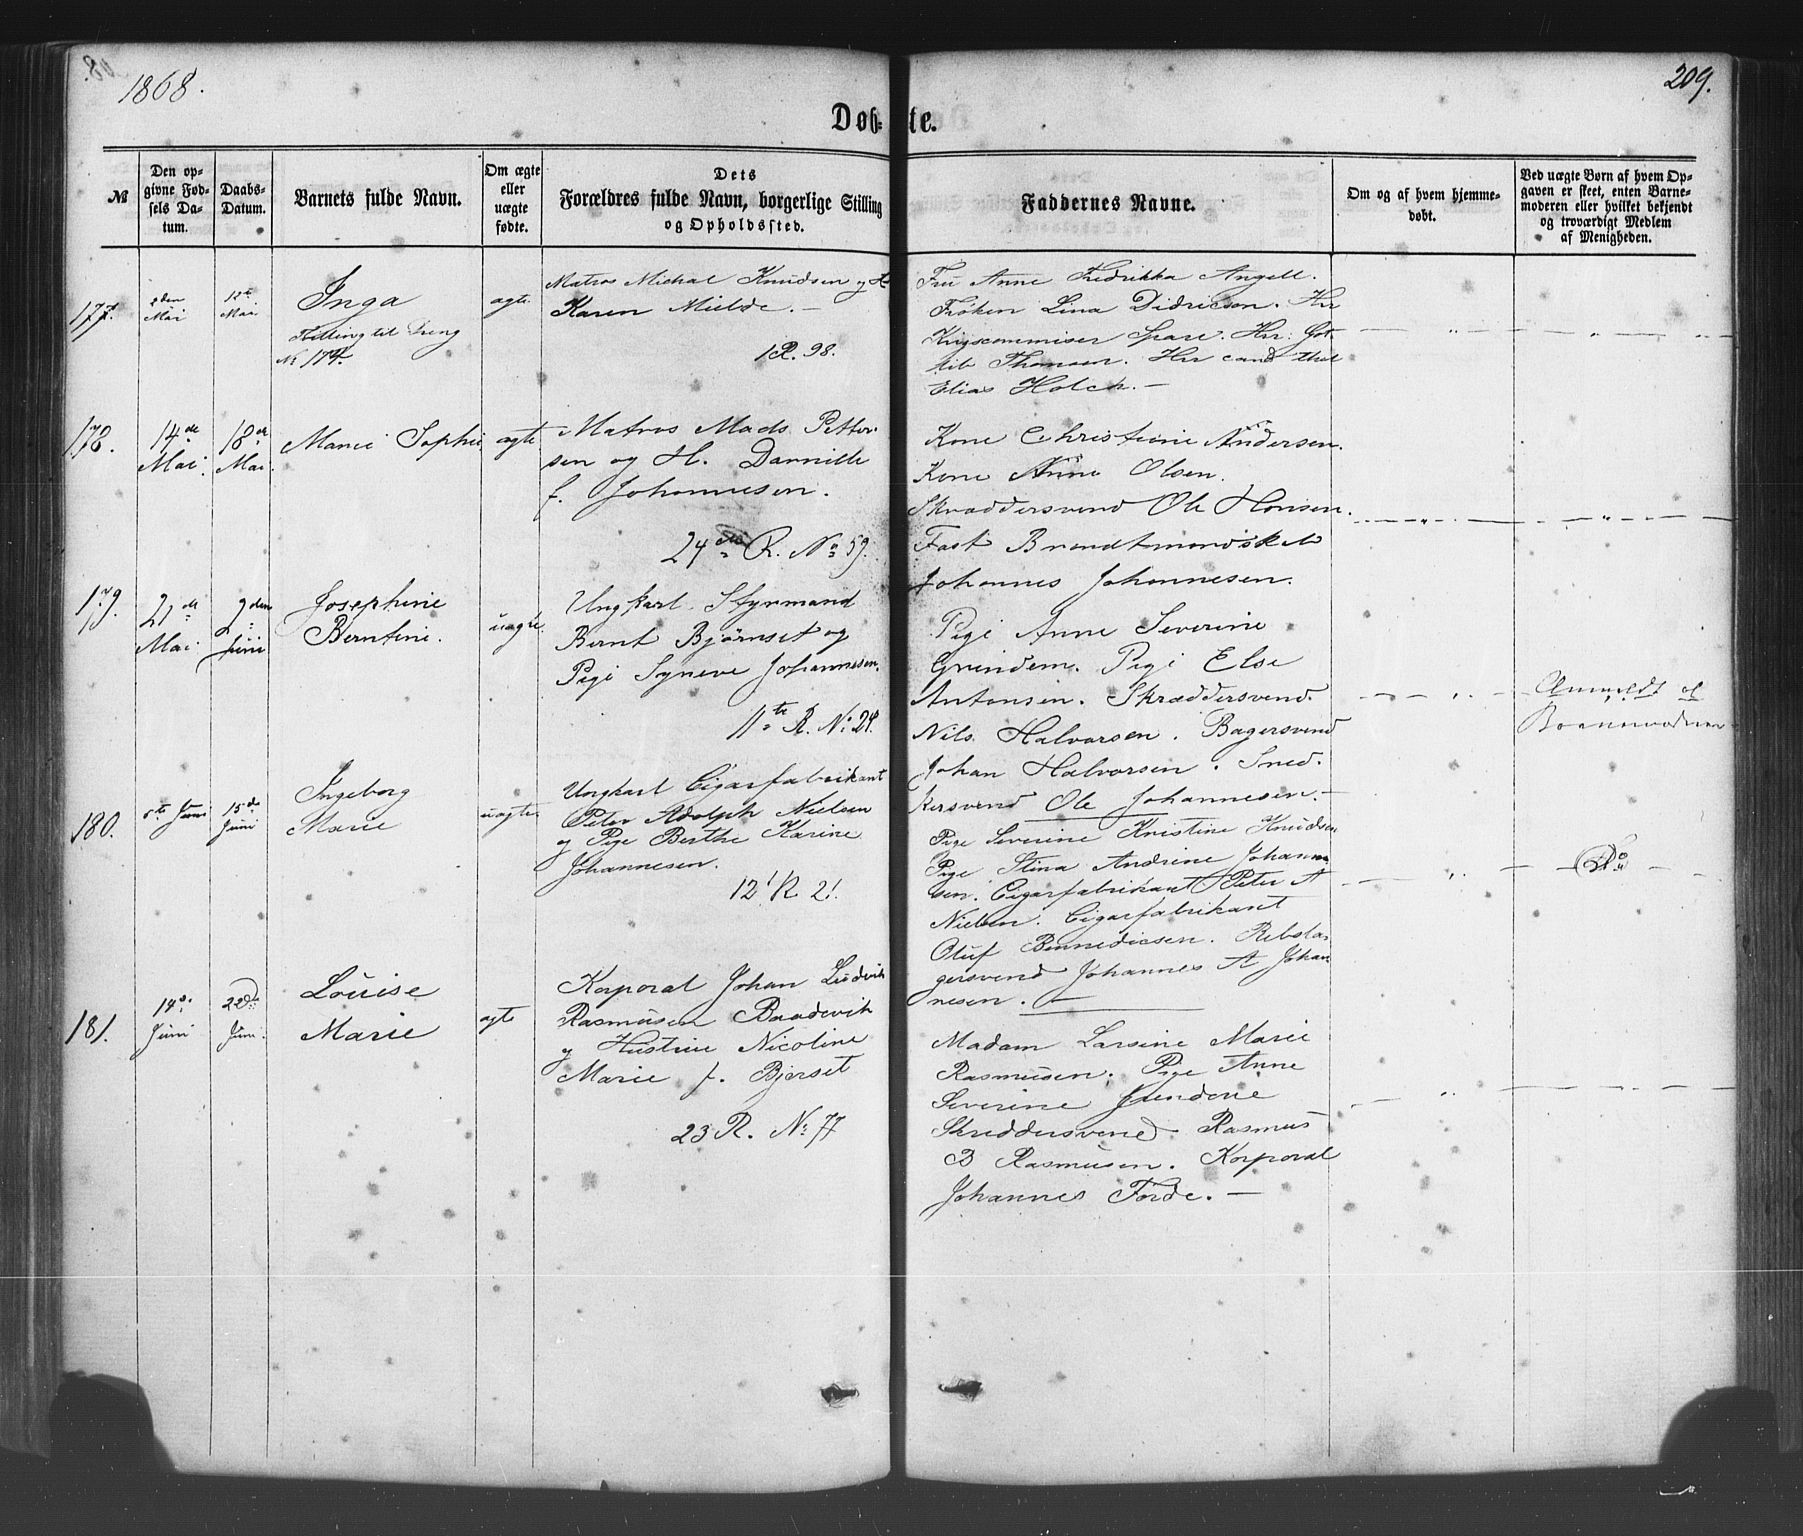 1868.
209.
Døb- te.
№
Den op-
givne Fød-
sels Da-
tum.
Daabs-
Datum.
Barnets fulde Navn.
Om ægte
eller
uægte
fødte.
Dets
Forældres fulde Navn, borgerlige Stilling
og Opholdssted.
Faddernes Navne.
Om og af hvem hjemme-
døbt.
Ved uægte Børn af hvem Op-
gaven er skeet, enten Barne-
moderen eller hvilket bekjendt
og troværdigt Medlem
af Menigheden.
177.
Mai
12te
Mai
Inga
Tvilling til Dreng
No 174.
ægte
Matros Michal Knudsen og H
Karen Mielde.
1 R. 98.
Fru Anne Fredrikka Angell.
Frøken Lina Didricson. Hr
Krigscommiser Spare. Hr. Got-
lib Thomsen. Hr cand theol
Elias Holck.
178.
14de
Mai.
18de
Mai.
Marie Sophie
ægte
Matros Mads Petter-
sen og H. Dannille
f. Johannesen.
24de R. No 59.
Kone Christine Andersen.
Kone Anne Olsen.
Skræddersvend Ole Hansen.
Fast Brandtmandsk
Johannes Johannesen.
179.
21de
Mai.
2den
Juni
Josephine
Berntine.
uægte.
Ungkarl Styrmand
Bernt Bjørnset og
Pige Syneve Johannesen.
11te R. No 24.
Pige Anne Severine
Grindem. Pige Else
Antonsen. Skræddersvend
Nils Halvorsen. Bagersvend
Johan Halvorsen. Sned-
kersvend Ole Johannesen.
Anmeldt af
Barnemoderen
180.
5te Juni
15de
Juni
Ingeborg
Marie
uægte
Ungkarl Cigarfabrikant
Peter Adolph Nielsen
og Pige Berthe Karine
Johannesen.
12! R 2!
Pige Severine Kristine Knudsen
Pige Stina Andrine Johanne-
sen. Cigarfabrikant Peter A
Nielsen. Cigarfabrikant
Oluf Bennedicsen. Rebsla-
gersvend Johannes A Johan
nesen.
Do
181.
14de
Juni
22de
Juni.
Louise
Marie
ægte
Korporal Johan Ludvik
Rasmusen Baadevik
og Hustrue Nicoline
Marie f. Bjerset
23 R. No 77
Madam Larsine Marie
Rasmusen. Pige Anne
Severine
Skreddersvend Rasmus
B Rasmusen. Korporal
Johannes Forde.